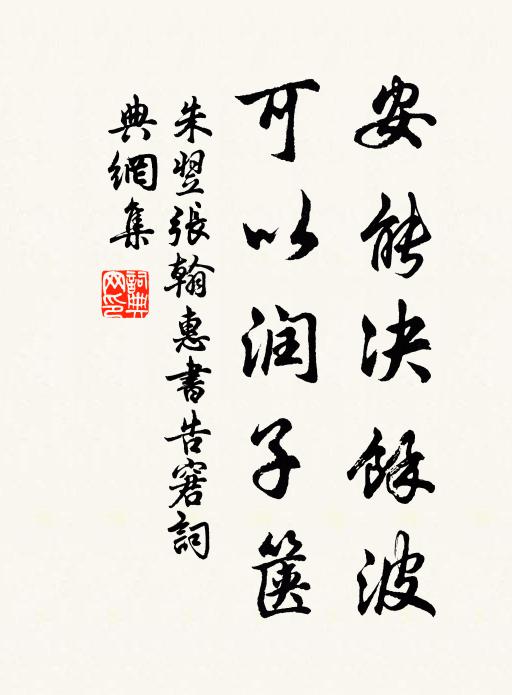 安能决餘波
可以润子箧
朱翌張翰惠書告窘詞
典網集
詞典
网印